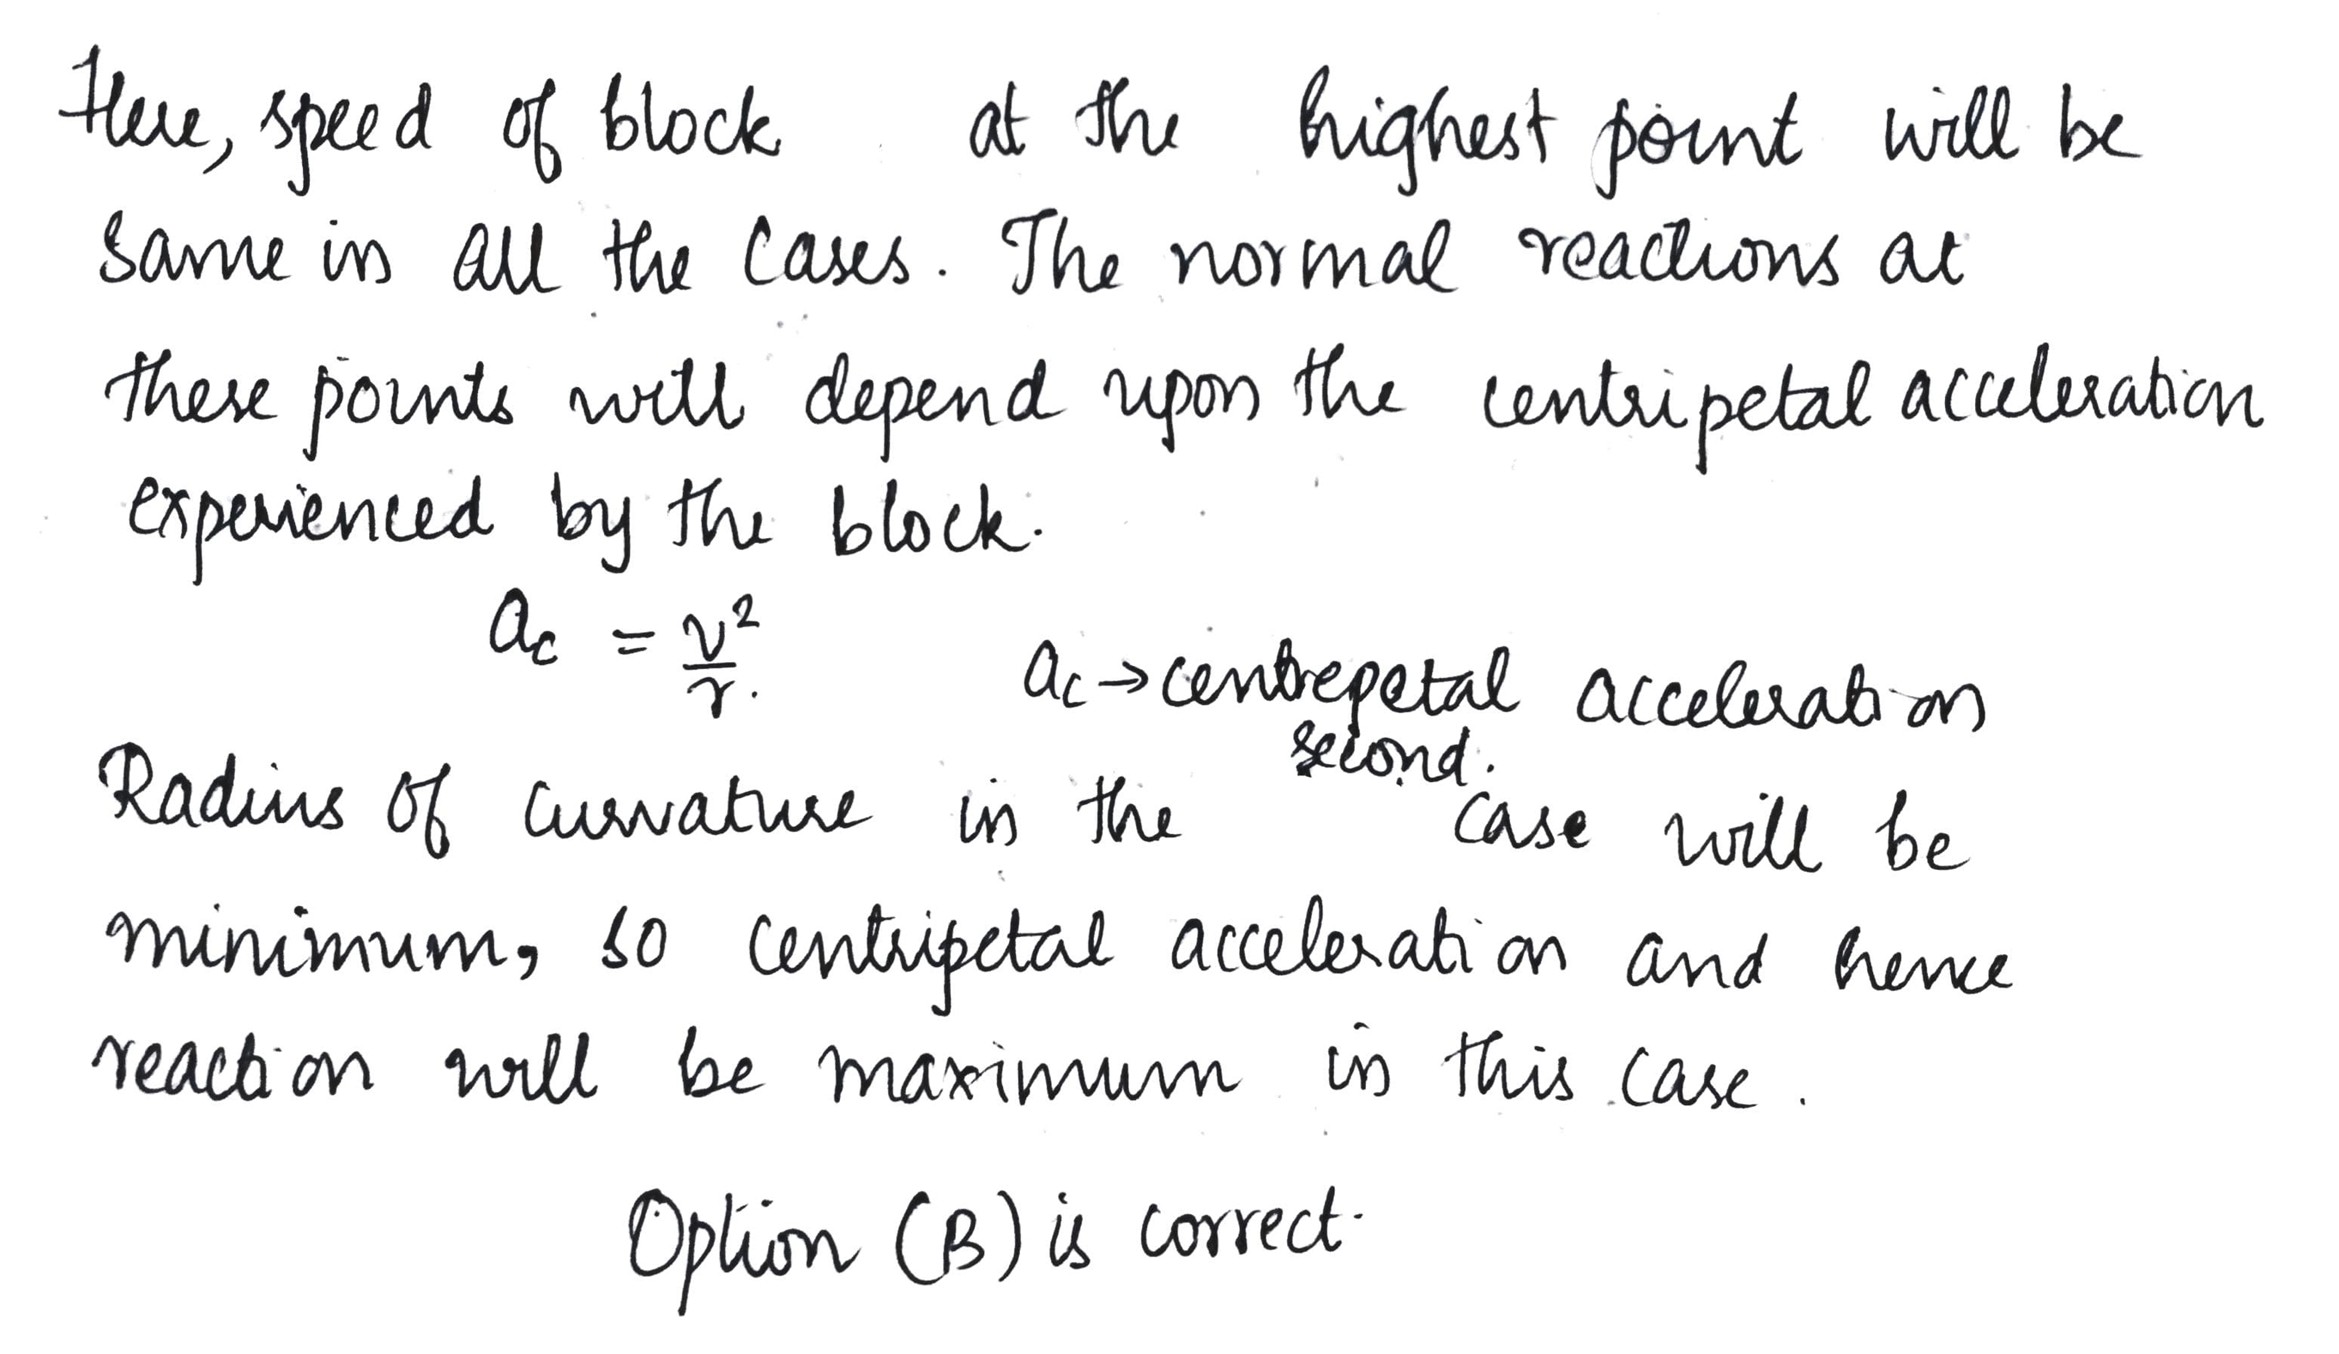 Here, speed of block at the highest point will be
same in all the cases. The normal reactions at
these points will depend upon the centripetal acceleration
experienced by the block.
a_c = v²/r. a_c → centrepetal acceleration
second.
Radius of curvature in the case will be
minimum, so centripetal acceleration and hence
reaction will be maximum in this case.
Option (B) is correct.